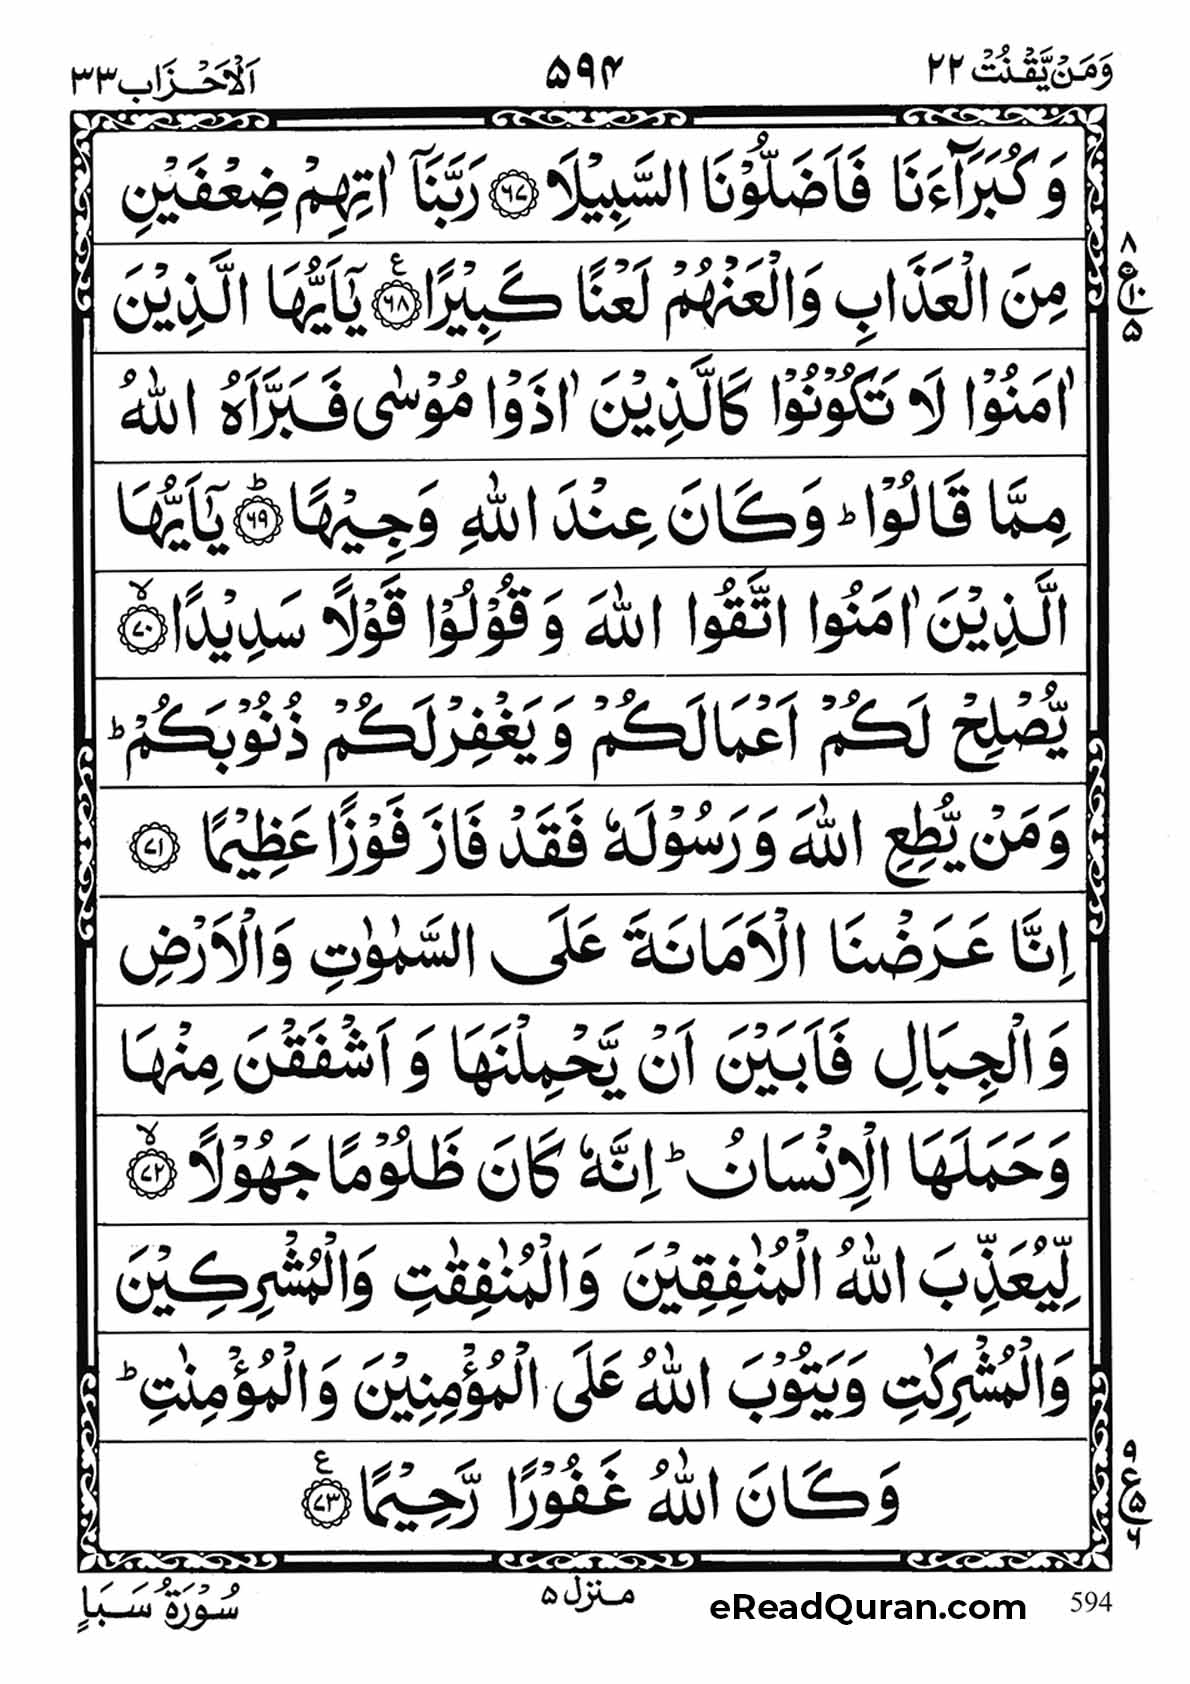 وَمَنْ يَّقْنُتْ ٢٢ ۵۹۴ اَلْاَحْزَاب ٣٣
وَكُبَرَآءَنَا فَاَضَلُّوْنَا السَّبِيْلَا ﴿٦٧﴾ رَبَّنَآ اٰتِهِمْ ضِعْفَيْنِ
مِنَ الْعَذَابِ وَالْعَنْهُمْ لَعْنًا كَبِيْرًا ﴿٦٨﴾ ع يٰٓاَيُّهَا الَّذِيْنَ
٨ ع ١٠ ۵
اٰمَنُوْا لَا تَكُوْنُوْا كَالَّذِيْنَ اٰذَوْا مُوْسٰى فَبَرَّاَهُ اللّٰهُ
مِمَّا قَالُوْا ؕ وَكَانَ عِنْدَ اللّٰهِ وَجِيْهًا ﴿٦٩﴾ؕ يٰٓاَيُّهَا
الَّذِيْنَ اٰمَنُوا اتَّقُوا اللّٰهَ وَقُوْلُوْا قَوْلًا سَدِيْدًا ﴿٧٠﴾ۙ
يُّصْلِحْ لَكُمْ اَعْمَالَكُمْ وَيَغْفِرْلَكُمْ ذُنُوْبَكُمْ ؕ
وَمَنْ يُّطِعِ اللّٰهَ وَرَسُوْلَهٗ فَقَدْ فَازَ فَوْزًا عَظِيْمًا ﴿٧١﴾
اِنَّا عَرَضْنَا الْاَمَانَةَ عَلَى السَّمٰوٰتِ وَالْاَرْضِ
وَالْجِبَالِ فَاَبَيْنَ اَنْ يَّحْمِلْنَهَا وَاَشْفَقْنَ مِنْهَا
وَحَمَلَهَا الْاِنْسَانُ ؕ اِنَّهٗ كَانَ ظَلُوْمًا جَهُوْلًا ﴿٧٢﴾ۙ
لِّيُعَذِّبَ اللّٰهُ الْمُنٰفِقِيْنَ وَالْمُنٰفِقٰتِ وَالْمُشْرِكِيْنَ
وَالْمُشْرِكٰتِ وَيَتُوْبَ اللّٰهُ عَلَى الْمُؤْمِنِيْنَ وَالْمُؤْمِنٰتِ ؕ
وَكَانَ اللّٰهُ غَفُوْرًا رَّحِيْمًا ﴿٧٣﴾ ع
٩ ع ۵ ٦
594 eReadQuran.com منزل ۵ سُوْرَةُ سَبَاٍ